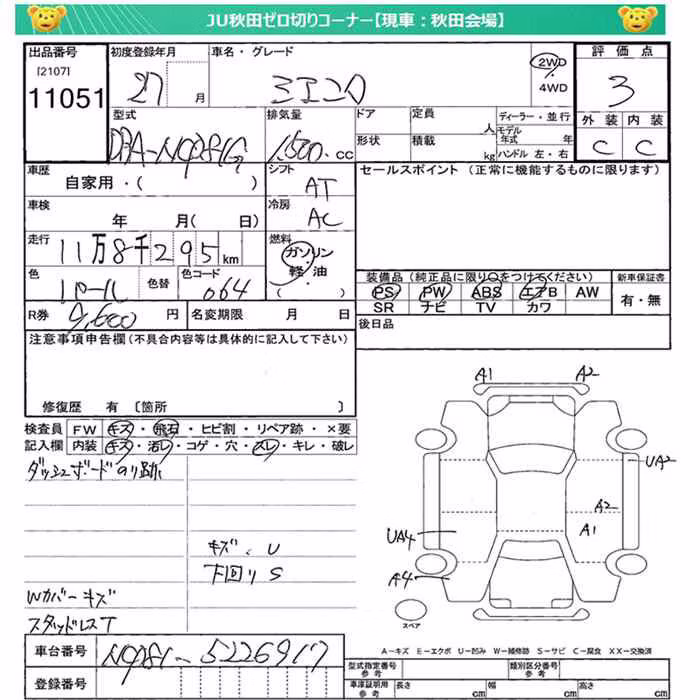 JU秋田ゼロ切りコーナー【現車：秋田会場】
出品番号
[2107]
11051
初度登録年月
27 月
車名・グレード
ミエコロ
2WD
4WD
評価点
3
外装 内装
C C
型式
DBA-NCP81G
排気量
1,500.cc
ドア
形状
定員 人
積載 kg
ディーラー・並行
モデル年式 年
ハンドル 左・右
車歴
自家用・( )
シフト
AT
セールスポイント（正常に機能するものに限ります）
車検
年 月( 日)
冷房
AC
走行
11万8千295km
燃料
ガソリン
軽・油
( )
色
パール
色替
色コード
064
装備品（純正品に限り○をつけてください）
PS PW ABS エアB AW
SR ナビ TV カワ
新車保証書
有・無
R券 9,600円
名変期限 月 日
後日品
注意事項申告欄（不具合内容等は具体的に記入して下さい）
修復歴 有〔箇所 〕
検査員記入欄
FW キズ・飛石・ヒビ割・リペア跡・×要
内装 キズ・汚レ・コゲ・穴・スレ・キレ・破レ
ダッシュボードのり跡
キズ、U
下回りS
Wカバーキズ
スタッドレスT
A1 A2
UA2
A2
A1
UA4
A4
スペア
A－キズ E－エクボ U－凹み W－補修跡 S－サビ C－腐食 XX－交換済
車台番号
NCP81-5226917
登録番号
型式指定番号 参考
類別区分番号 参考
車庫証明用 参考
長さ cm 幅 cm 高さ cm